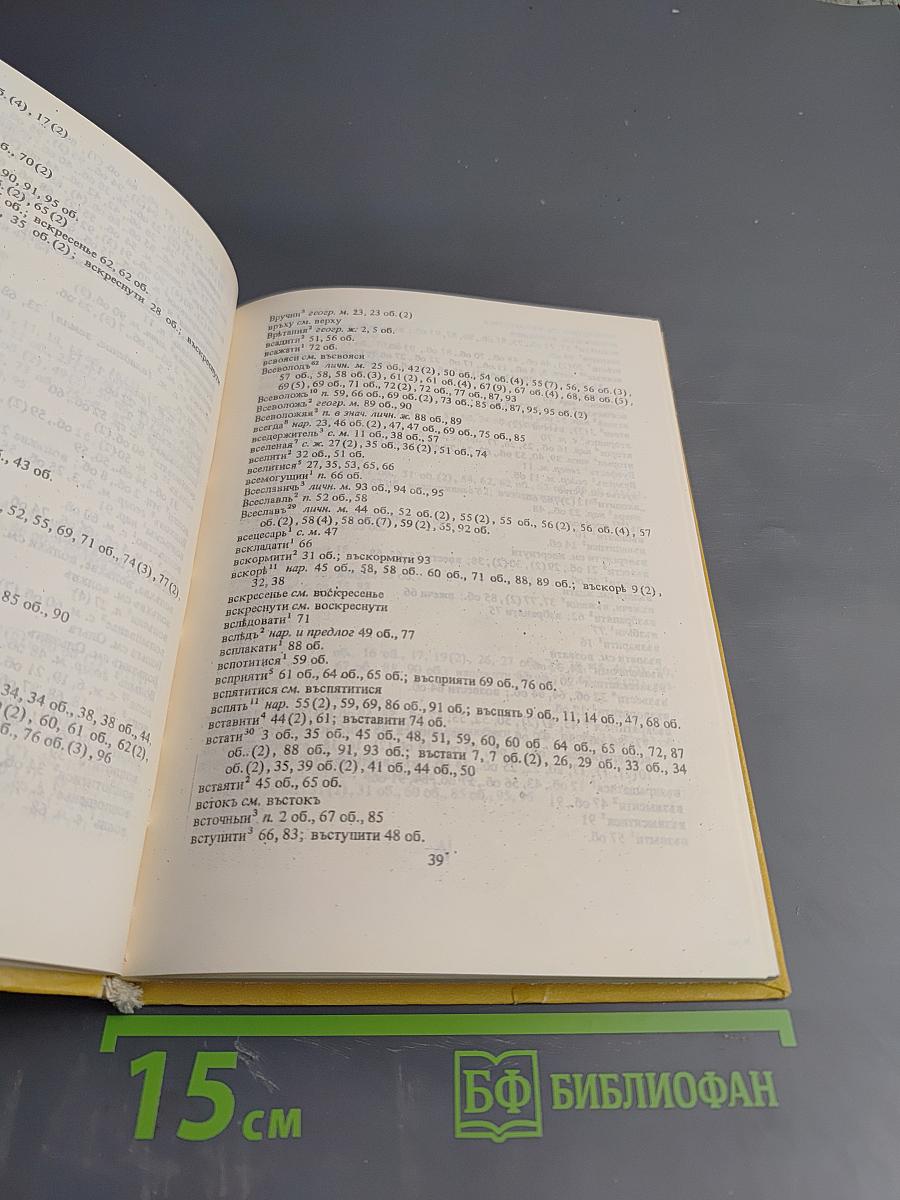 б.(4), 17(2)
б., 70(2)
90, 91, 95 об.
б.(2), 65(2)
об.; вскресенье 62, 62 об.
35 об.(2); вскреснути 28 об.;
б., 43 об.
52, 55, 69, 71 об., 74(3), 77(2),
85 об., 90
34, 34 об., 38, 38 об., 44
(2), 60, 61 об., 62(2),
б., 76 об.(3), 96
Вручии³ геогр. м. 23, 23 об.(2)
връху см. верху
Врѣтания² геогр. ж. 2, 5 об.
всадити² 51, 56 об.
всажати¹ 72 об.
всвояси см. въсвояси
Всеволодъ⁶² личн. м. 25 об., 42(2), 50 об., 54 об.(4), 55(7), 56, 56 об.(3),
57 об., 58, 58 об.(3), 61(2), 61 об.(4), 67(9), 67 об.(4), 68, 68 об.(5),
69(5), 69 об., 71 об., 72(2), 72 об., 77 об., 87, 93
Всеволожь¹⁰ п. 59, 66 об., 69 об.(2), 73 об., 85 об., 87, 95, 95 об.(2)
Всеволожь² геогр. м. 89 об., 90
Всеволожая² п. в знач. личн. ж. 88 об., 89
всегда⁸ нар. 23, 46 об.(2), 47, 47 об., 69 об., 75 об., 85
вседержитель³ с. м. 11 об., 38 об., 57
вселеная⁷ с. ж. 27(2), 35 об., 36(2), 51 об., 74
вселити² 32 об., 51 об.
вселитися⁵ 27, 35, 53, 65, 66
всемогущии¹ п. 66 об.
Всеславичь³ личн. м. 93 об., 94 об., 95
Всеславль² п. 52 об., 58
Всеславъ²⁹ личн. м. 44 об., 52 об.(2), 55(2), 55 об., 56(2), 56 об.(4), 57
об.(2), 58(4), 58 об.(7), 59(2), 65, 92 об.
всецесарь¹ с. м. 47
вскладати¹ 66
вскормити² 31 об.; въскормити 93
вскорѣ¹¹ нар. 45 об., 58, 58 об.. 60 об., 71 об., 88, 89 об.; въскорѣ 9(2),
32, 38
вскресенье см. воскресенье
вскреснути см. воскреснути
вслѣдовати¹ 71
вслѣдъ² нар. и предлог 49 об., 77
всплакати¹ 88 об.
вспотитися¹ 59 об.
всприяти⁵ 61 об., 64 об., 65 об.; въсприяти 69 об., 76 об.
вспятитися см. въспятитися
вспять¹¹ нар. 55(2), 59, 69, 86 об., 91 об.; въспять 9 об., 11, 14 об., 47, 68 об.
вставити⁴ 44(2), 61; въставити 74 об.
встати³⁰ 3 об., 35 об., 45 об., 48, 51, 59, 60, 60 об. 64 об., 65 об., 72, 87
об..(2), 88 об., 91, 93 об.; въстати 7, 7 об.(2), 26, 29 об., 33 об., 34
об.(2), 35, 39 об.(2), 41 об., 44 об., 50
встаяти² 45 об., 65 об.
встокъ см. въстокъ
всточныи³ п. 2 об., 67 об., 85
вступити³ 66, 83; въступити 48 об.
39
15 см
БФ БИБЛИОФАН